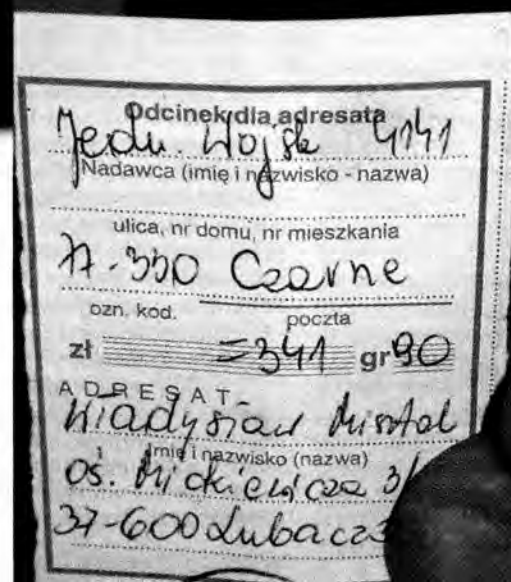 Odcinek dla adresata
Jedn. Wojsk 4141
Nadawca (imię i nazwisko - nazwa)
ulica, nr domu, nr mieszkania
77-330 Czarne
ozn. kod. poczta
zł =341 gr 90
ADRESAT
Władysław Misztal
imię i nazwisko (nazwa)
oś. Mickiewicza 3/
37-600 Lubacz